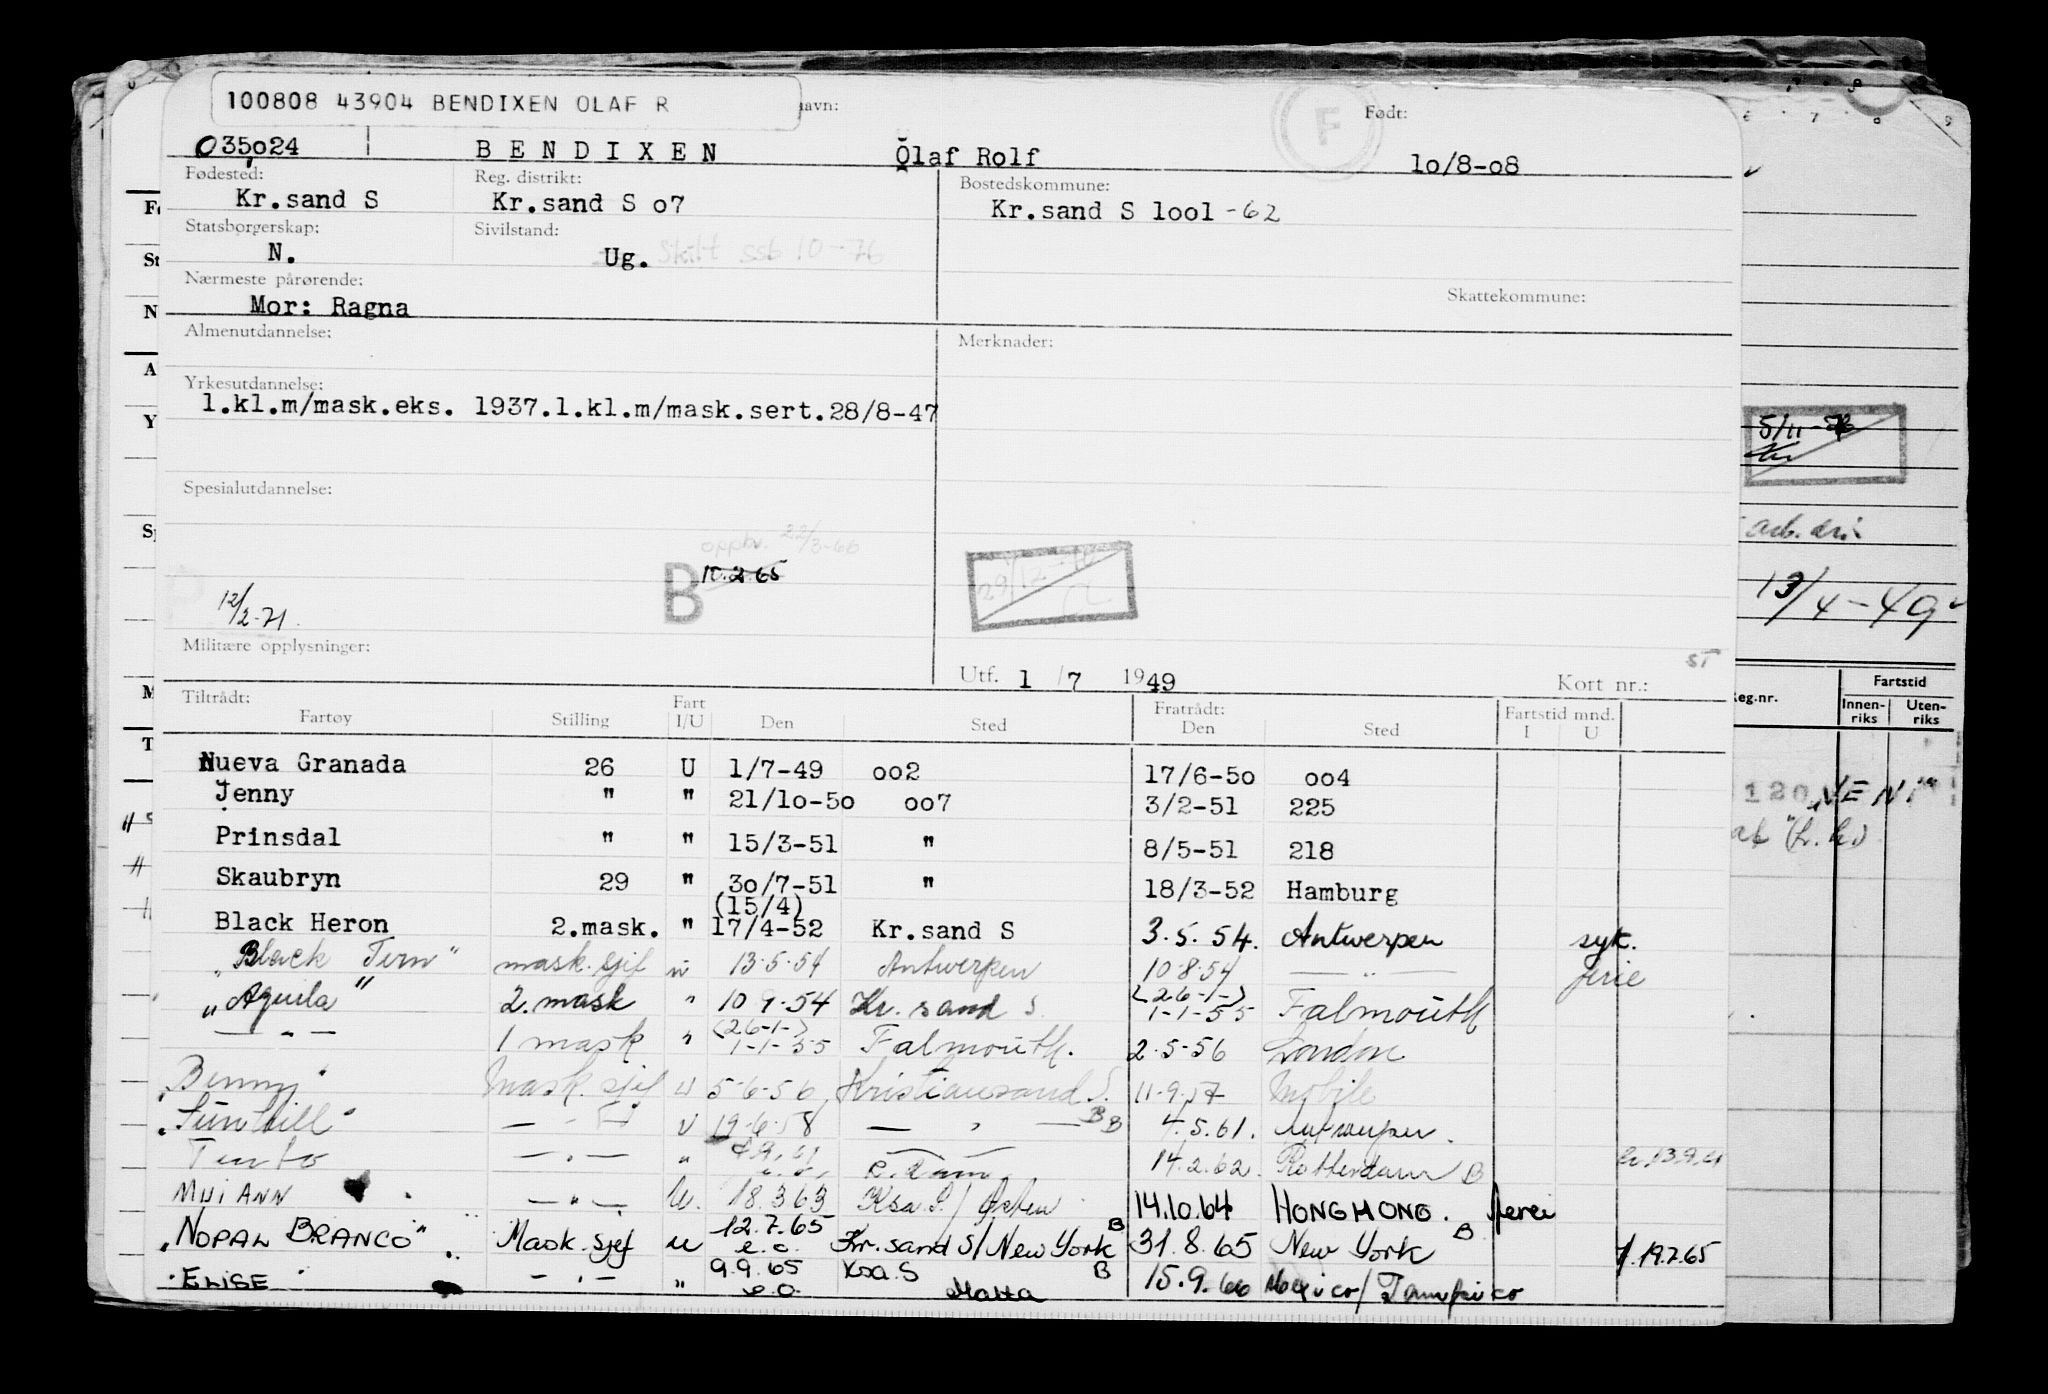 100808 43904 BENDIXEN OLAF R
navn:
Født:
035024 BENDIXEN Olaf Rolf 10/8-08
Fødested: Reg. distrikt: Bostedskommune:
Kr.sand S Kr.sand S o7 Kr.sand S lool -62
Statsborgerskap: Sivilstand:
N. Ug. Skilt ssb 10-76
Nærmeste pårørende: Skattekommune:
Mor: Ragna
Almenutdannelse: Merknader:
Yrkesutdannelse:
1.kl.m/mask.eks. 1937.1.kl.m/mask.sert.28/8-47
5/11-
Spesialutdannelse:
arb. dri
oppbv. 22/3-66
B 10.2.65
29/12-70
12/2-71.
13/4-49
Militære opplysninger:
ST
Utf. 1/7 1949 Kort nr.:
Reg.nr. Fartstid
Innen-riks Uten-riks
Tiltrådt: Fart Fratrådt: Fartstid mnd.
Fartøy Stilling I/U Den Sted Den Sted I U
Nueva Granada 26 U 1/7-49 oo2 17/6-5o oo4
Jenny " " 21/1o-5o oo7 3/2-51 225
Prinsdal " " 15/3-51 " 8/5-51 218
Skaubryn 29 " 3o/7-51 " 18/3-52 Hamburg
(15/4)
Black Heron 2.mask. " 17/4-52 Kr.sand S 3.5.54. Antwerpen syk.
"Black Tern" mask.sjef u 13.5.54 Antwerpen 10.8.54 — " — ferie
"Aquila" 2.mask " 10 9.54 Kr. sand S. (26-1-) 1-1-55 Falmouth
— " — 1 mask " (26-1-) 1-1-55 Falmouth. 2.5-56 London
"Benny" Mask. sjef u 5-6-56 Kristiansand S. 11.9.57 Mobile
"Sunhill" — " — U 19.6.58 — " — B B 4.5.61. Antwerpen.
Tento — " — " 14.2.62. Rotterdam B 13.9.61
MUI ANN — " — U. 18.3 63 Ksa S./ 14.10.64 HONGHONG. ferei
"NOPAL BRANCO" Mask. sjef u 12.7.65 e.o. Kr.sand S/New York B 31.8.65 New York B 19.7.65
"ELISE" — " — " 9.9.65 e.o. Ksa. S Malta B 15.9.66 Mexico/Tampico